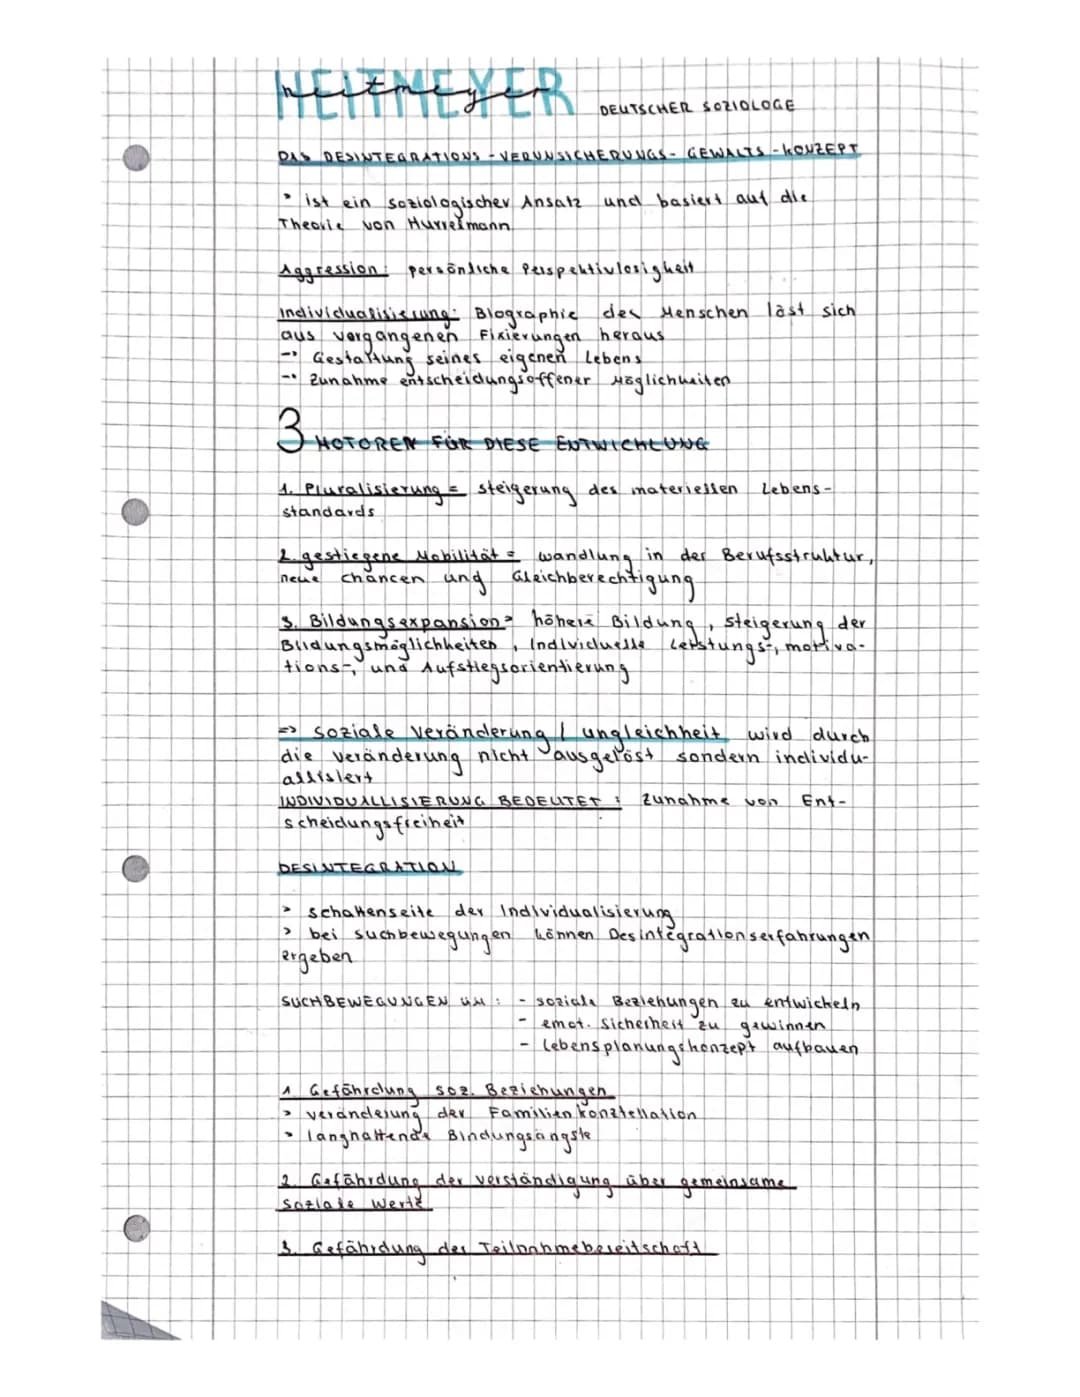 HEITMEYER
heitmeyer
DEUTSCHER SOZIOLOGE
DAS DESINTEGRATIONS-VERUNSICHERUNGS-GEWALTS-KONZEPT
> ist ein soziologischer Ansatz und basiert auf die
Theorie von Hurrelmann
Aggression: persönliche Perspektivlosigkeit
Individualisierung: Biographie des Menschen läst sich
aus vergangenen Fixierungen heraus
-> Gestaltung seines eigenen Lebens
-> Zunahme entscheidungsoffener Möglichkeiten
3 MOTOREN FÜR DIESE ENTWICKLUNG
1. Pluralisierung = steigerung des materiellen Lebens-
standards
2. gestiegene Mobilität = wandlung in der Berufsstruktur,
neue Chancen und Gleichberechtigung
3. Bildungsexpansion = höhere Bildung, steigerung der
Bildungsmöglichkeiten, Individuelle Leistungs-, motiva-
tions-, und Aufstiegsorientierung
=> soziale Veränderung / ungleichheit wird durch
die veränderung nicht ausgelöst sondern individu-
allisiert
INDIVIDUALLISIERUNG BEDEUTET: Zunahme von Ent-
scheidungsfreiheit
DESINTEGRATION
> schattenseite der Individualisierung
> bei suchbewegungen können Desintegrationserfahrungen
ergeben
SUCHBEWEGUNGEN UM: - soziale Beziehungen zu entwickeln
- emot. Sicherheit zu gewinnen
- Lebensplanungskonzept aufbauen
1 Gefährdung soz. Beziehungen
> veränderung der Familienkonstellation
> langhaftende Bindungsängste
2. Gefährdung der verständigung über gemeinsame
soziale Werte
3. Gefährdung der Teilnahmebereitschaft